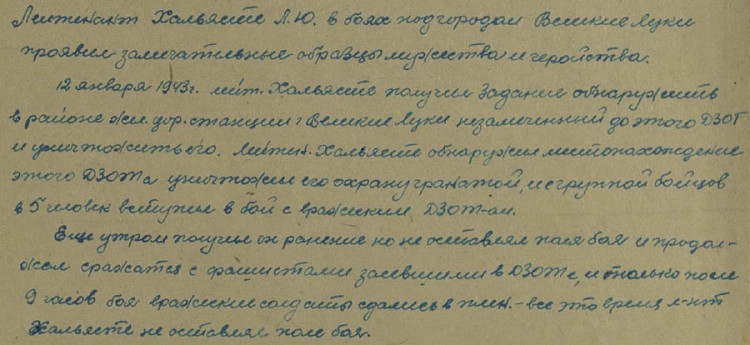 Лейтенант Хальясте Л.Ю. в боях под городом Великие Луки
проявил замечательные образцы мужества и геройства.
12 января 1943г. лейт. Хальясте получил задание обнаружить
в районе жел. дор. станции г Великие Луки незамеченный до этого ДЗОТ
и уничтожить его. Лейтен. Хальясте обнаружил местонахождение
этого ДЗОТ а уничтожил его охрану гранатой, и с группой бойцов
в 5 человек вступил в бой с вражеским ДЗОТ-ом.
Еще утром получил он ранение но не оставлял поля боя и продол-
жал сражатся с фашистами засевшими в ДЗОТ е, и только после
9 часов боя вражеские солдаты сдались в плен. - все это время л-нт
Хальясте не оставлял поле боя.